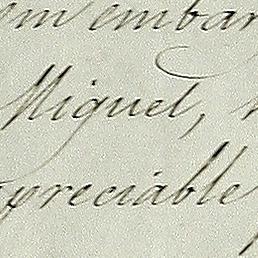 embar
Miguel,
preciable